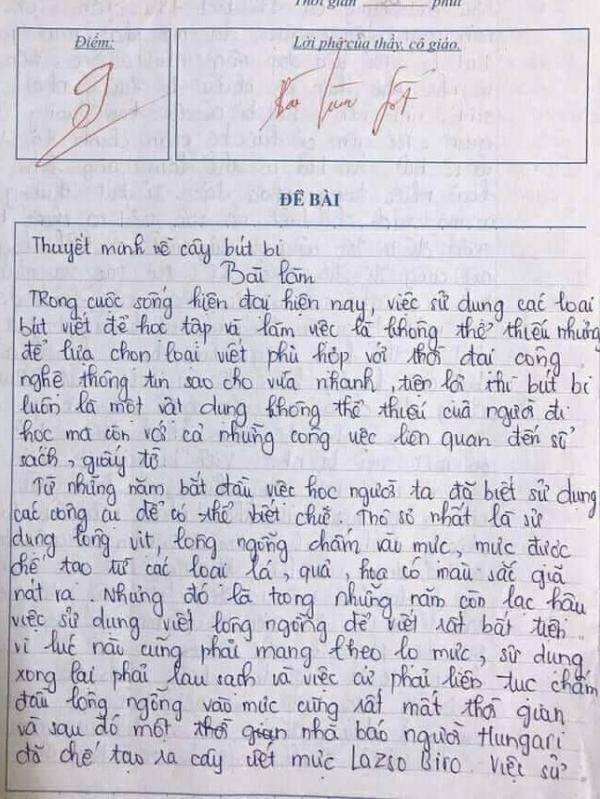 Thời gian phút
Điểm:
Lời phê của thầy, cô giáo.
9
Bài làm tốt
ĐỀ BÀI
Thuyết minh về cây bút bi
Bài làm
Trong cuốc sống hiện đai hiện nay, việc sử dụng các loai
bút viết để học tâp và làm vịêc là không thể thiếu nhưng
để lưa chon loai viết phù hơp với thời đai công
nghê thông tin sao cho vừa nhanh, tiện lơi thì bút bi
luôn là môt vât dung không thể thiếu của người đi
học mà còn với cả những công vịêc liên quan đến sổ
sách, giấy tờ
Từ những năm bắt đầu việc học người ta đã biết sử dụng
các công cu để có thể viết chữ. Thô sơ nhất là sử
dung lông vit, lông ngỗng chấm vào mưc, mưc được
chế tao từ các loai lá, quả, hoa có màu sắc giã
nát ra. Nhưng đó là trong những năm còn lac hâu
việc sử dụng viết lông ngỗng để viết rất bất tiên
vì luc nào cũng phải mang theo lo mưc, sử dụng
xong lại phải lau sach và việc cứ phải liên tuc chấm
đầu lông ngỗng vào mưc cũng rất mất thời gian
và sau đó một thời gian nhà báo người Hungari
đã chế tạo ra cây viết mưc Lazso Biro. Việc sử